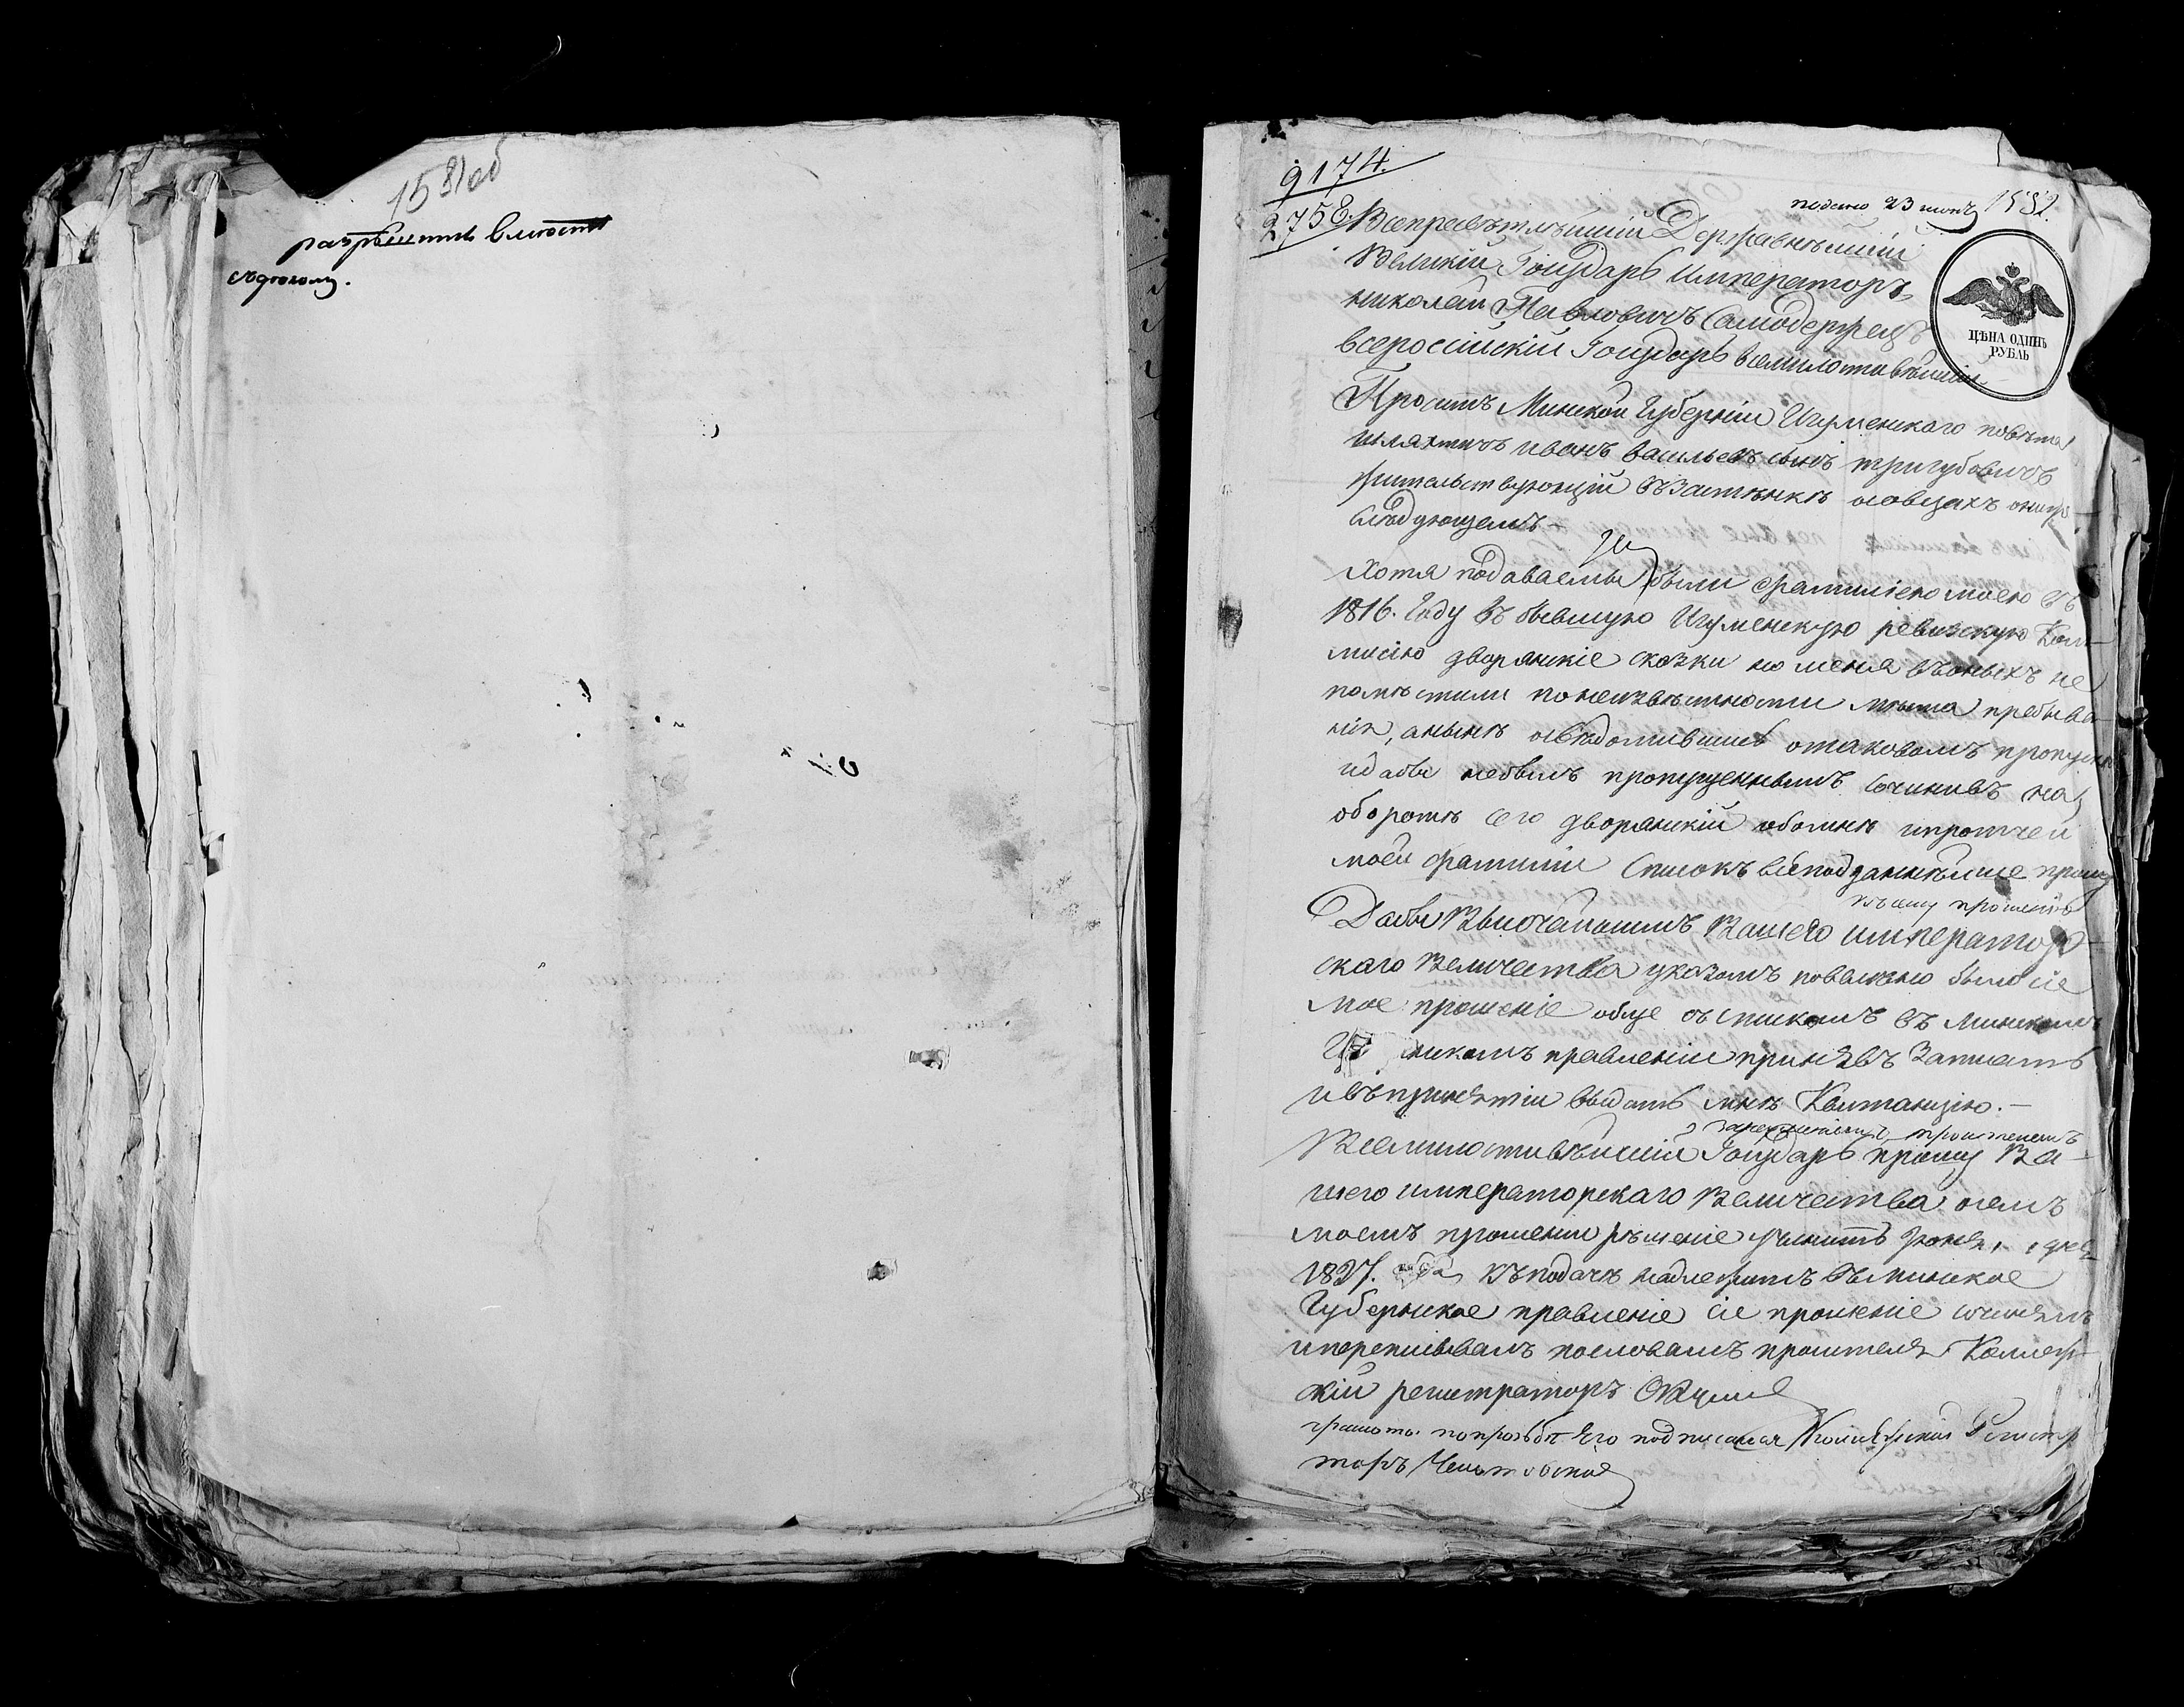 1581об
разрѣшить вмѣстѣ
9174.
2758.
подано 23 июня
1582.
Всепресвѣтлѣйшій Державнѣйшій
Великій Государь Императоръ
Николай Павловичъ Самодержецъ
всероссійскій Государь всемилостивѣйшій
ЦѢНА ОДИНЪ
РУБЛЬ
Проситъ Минской Губерніи Игуменскаго повѣта
шляхтичъ иванъ васильевъ сынъ тригубовичъ
жительствующій въ застѣнкѣ
слѣдующемъ
Хотя подаваемы были фамиліею моею въ
1816. Году въ бывшую Игуменскую ревизскую Ком-
мисію дворянскіе сказки но меня въ оныхъ не
помѣстили по неизвѣстности мѣста пребыва-
нія, а нынѣ освѣдомившись о таковомъ пропускѣ
и дабы небылъ пропущеннымъ сочинивъ на
оборотѣ сего дворянскій обо мнѣ и протчей
моей фамиліи Списокъ всеподданнѣйше прошу
къ сему прошенію
Дабы Высочайшимъ Вашего император-
скаго Величества указомъ повелѣно было сіе
мое прошеніе обще съ спискомъ въ Минскомъ
правленіи принявъ записать
и въ принятіи выдать мнѣ Квитанцію.
Всемилостивѣйшій Государь прошу Ва-
шего императорскаго Величества о семъ
моемъ прошеніи рѣшеніе учинить Іюня дня
1827. года къ подачѣ надлежитъ въ минское
Губернское правленіе сіе прошеніе сочинялъ
и переписывалъ по словамъ просителя Коллеж-
скій регистраторъ
грамоты по прозьбѣ Его подписался Коллежскій Регистр
торъ